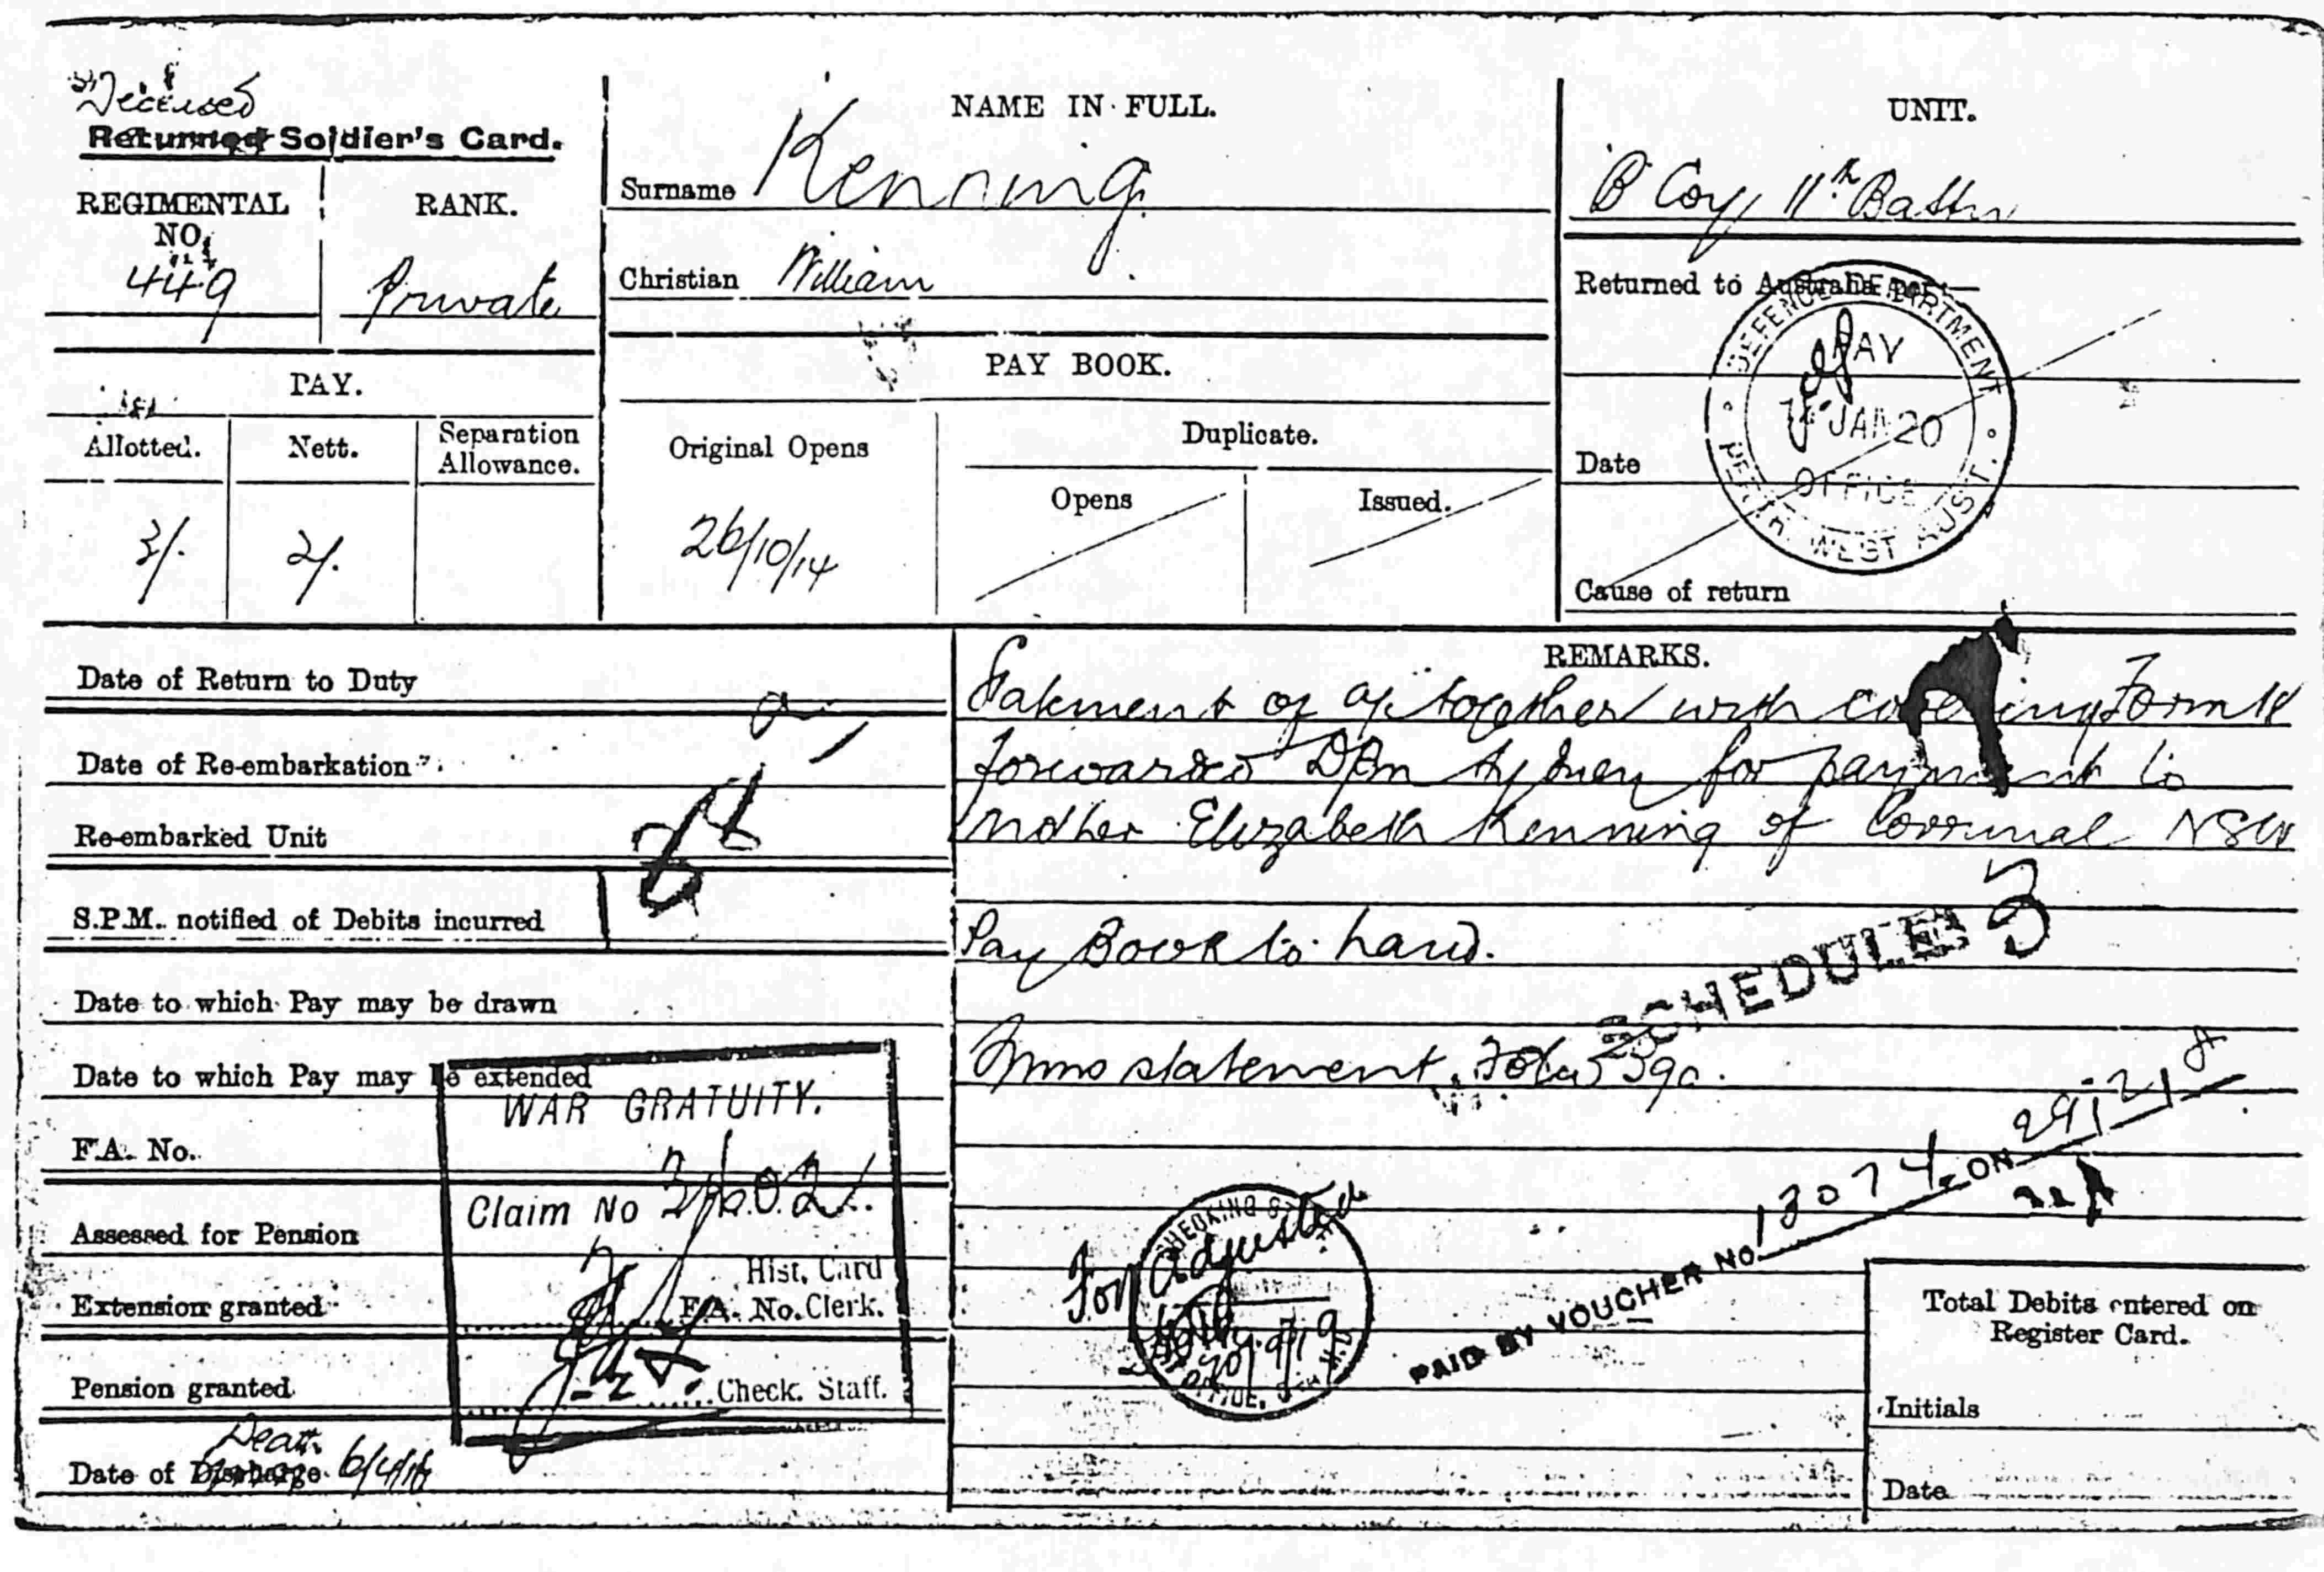 Deceased
Returned Soldier's Card.
REGIMENTAL NO.
449
RANK.
Private
NAME IN FULL.
Surname Kenning
Christian William
UNIT.
B Coy 11th Battn
Returned to Australia per
DEFENCE DEPARTMENT
PAY
JAN 20
OFFICE
PERTH. WEST AUST.
Date
Cause of return
PAY.
Allotted.
Nett.
Separation Allowance.
3/.
2/.
PAY BOOK.
Original Opens
26/10/14
Duplicate.
Opens
Issued.
Date of Return to Duty
Date of Re-embarkation
Re-embarked Unit
S.P.M. notified of Debits incurred
Date to which Pay may be drawn
Date to which Pay may be extended
F.A. No.
Assessed for Pension
Extension granted
Pension granted
Death
Date of Discharge
WAR GRATUITY.
Claim No
Hist. Card
F.A. No. Clerk.
Check. Staff.
REMARKS.
Statement of a/c together with covering Form
forwarded DPM Sydney for payment to
Mother Elizabeth Kenning of Corrimal NSW
Pay Book to hand.
SCHEDULE 3
statement
PAID BY VOUCHER NO 13074 ON
CHECKING
adjusted
20/9/19
Total Debits entered on
Register Card.
Initials
Date